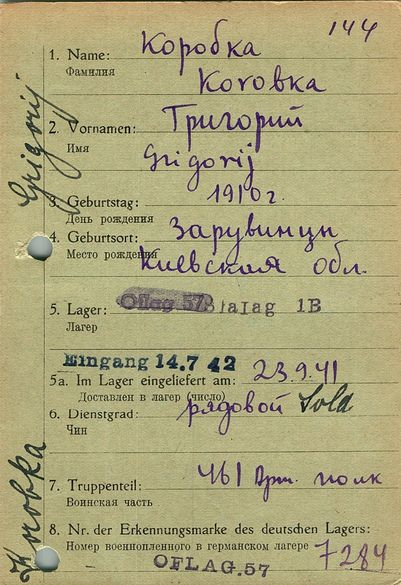 144
1. Name: Коробка
Фамилия
Korobka
2. Vornamen: Григорий
Имя
Grigorij
3. Geburtstag: 1910 г.
День рождения
4. Geburtsort: Зарубинцы
Место рождения Киевская обл.
5. Lager: Oflag 57 Stalag 1B
Лагерь
Eingang 14.7 42
5a. Im Lager eingeliefert am: 23.9.41
Доставлен в лагерь (число)
6. Dienstgrad: рядовой Sold
Чин
7. Truppenteil: 461 Арт. полк
Воинская часть
8. Nr. der Erkennungsmarke des deutschen Lagers:
Номер военнопленного в германском лагере 7284
OFLAG.57
Grigorij
Korobka